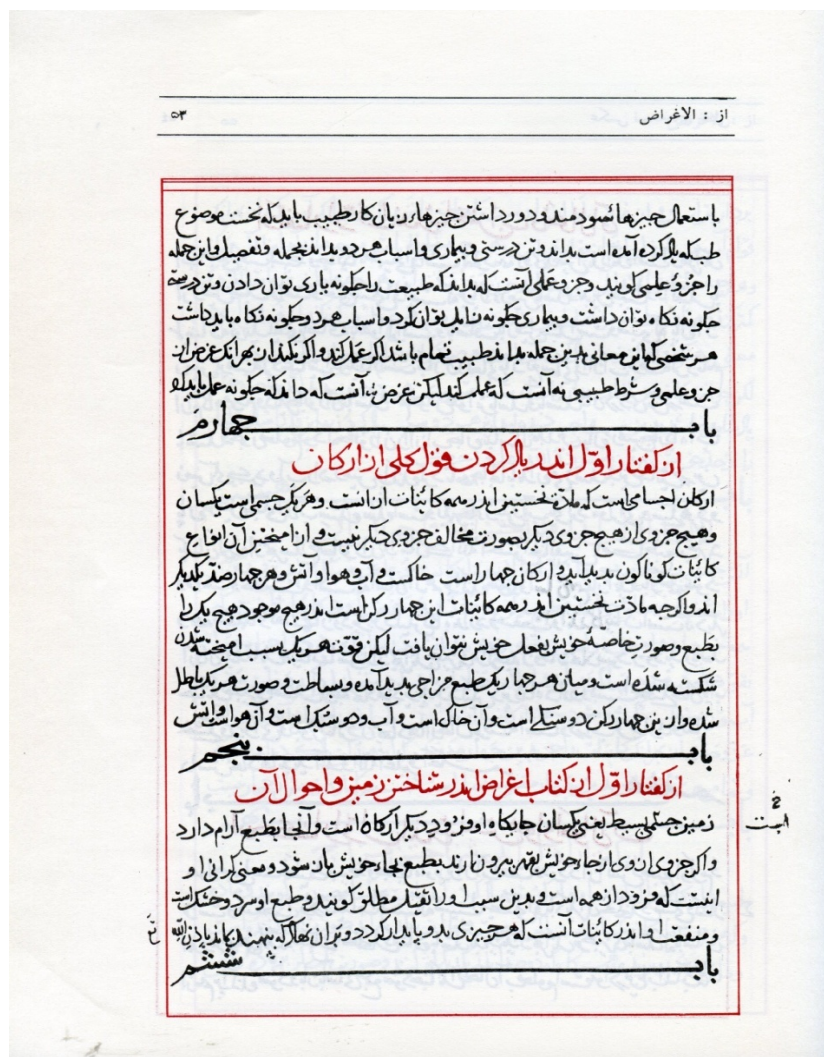 از : الاغراض
۵۳
باستعمال جیزهاٴ سودمند و دور داشتن جیزهاء زیان کار طبیب باید که نخست موضوع
طب که یاد کرده آمده است بداند و تن درستی و بیماری و اسباب هر دو بداند بجمله و تفصیل و این جمله
را جزوٴ علمی کویند و جزو عملی آنست که بداند که طبیعت را جکونه یاری توان دادن و تن درستی
جکونه نکاه توان داشت و بیماری جکونه زایل توان کرد و اسباب هر دو جکونه نکاه باید داشت
هر شخصی کی این معانی بدین جمله بداند طبیب تمام باشد اکر عمل کند و اکر نکند از بهر انک غرض از
جزو علمی و شرط طبیبی نه آنست که عمل کند لیکن غرض آنست که داند که جکونه عمل باید کرد
باب جهارم
از کفتار اوّل اندر یاد کردن قول کلی از ارکان
ارکان اجسامی است که مادّت نخستین اندر همه کاینات ان است. و هر یک جسمی است یکسان
و هیج جزوی از هیج جزوی دیکر بصورت مخالف جزوی دیکر نیست و از امیختن آن انواع
کاینات کوناکون بدید آید و ارکان جهار است خاکست و آب و هوا و اتش و هر جهار ضد یکدیکر
اند و اکرجه مادت نخستین اندر همه کاینات این جهار رکن است اندر هیج موجود هیج یک را
بطبع و صورت خاصهٴ خویش بفعل خویش نتوان یافت لیکن قوّت هر یک بسبب امیخته شدن
شکسته شده است و میان هر جهار یک طبع مزاجی بدید آمده و بساطت و صورت هر یک باطل
شده و از این جهار رکن دو سنکی است و آن خاک است و آب و دو سبک است و آن هوا است و اتش
باب بنجم
از کفتار اوّل از کتاب اغراض اندر شناختن زمین و احوال آن
زمین جسمی بسیط یعنی یکسان جایکاه او فرود دیکر ارکان است و آنجا بطبع آرام دارد
است
و اکر جزوی از وی از جاء خویش بقهر بیرون آرند بطبع بجاء خویش باز شود و معنی کرانی او
اینست که فرود از همه است و بدین سبب او را ثقیل مطلق کویند و طبع او سرد و خشک است
و منفعت او اندر کاینات آنست که هر جیزی بدو بایدار کردد و بر ان نهاد که بنهند بماند باذن الله
باب ششم